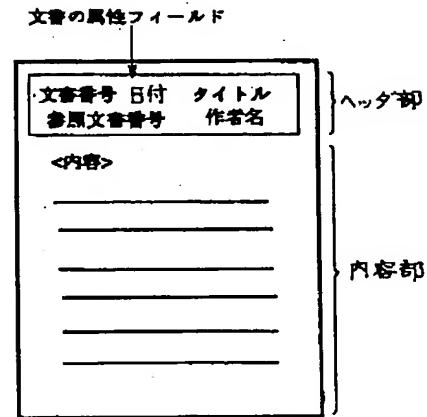 文書の属性フィールド
文書番号 日付 タイトル
参照文書番号 作者名
ヘッダ部
<内容>
内容部